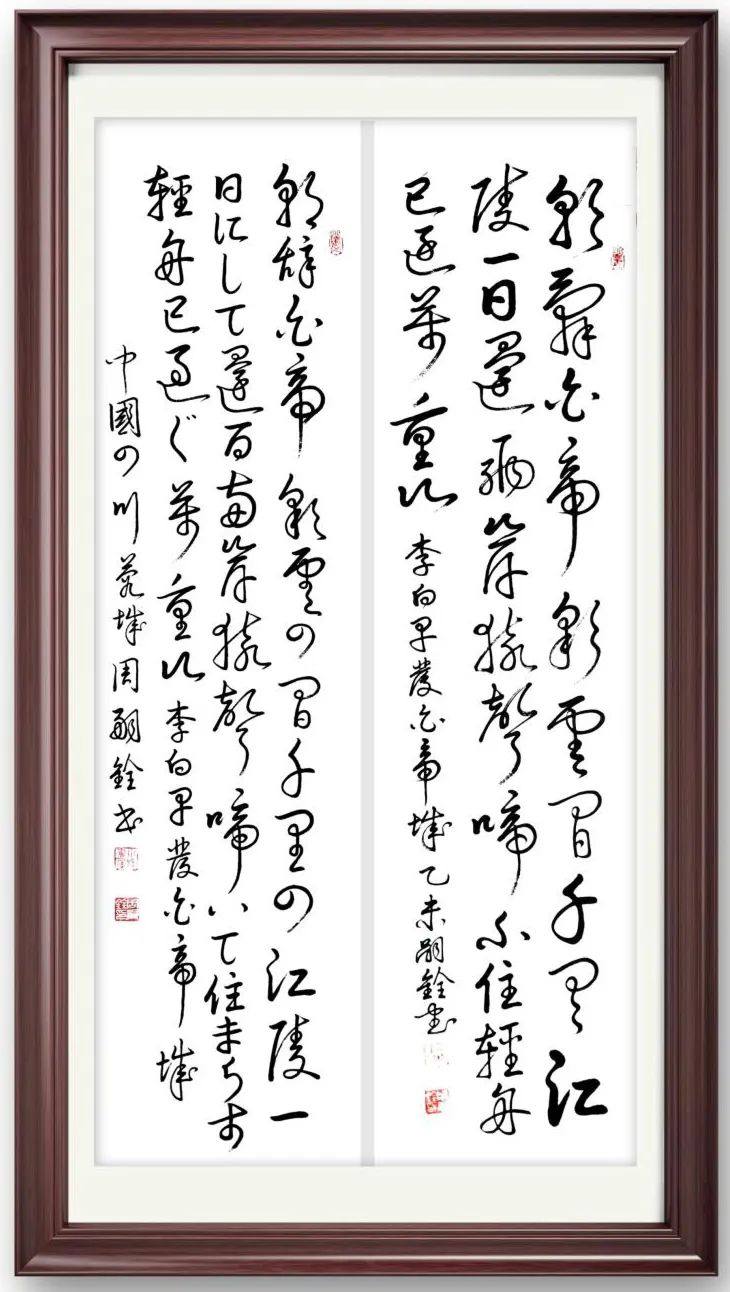 朝辭白帝彩雲間千里江
陵一日還兩岸猿聲啼不住輕舟
已過萬重山 李白早發白帝城 乙未嗣銓書
朝辞白帝彩雲の間千里の江陵一
日にして還両岸猿聲啼いて住まらず
輕舟已過ぐ萬重山 李白早發白帝城
中國四川蓉城周嗣銓書